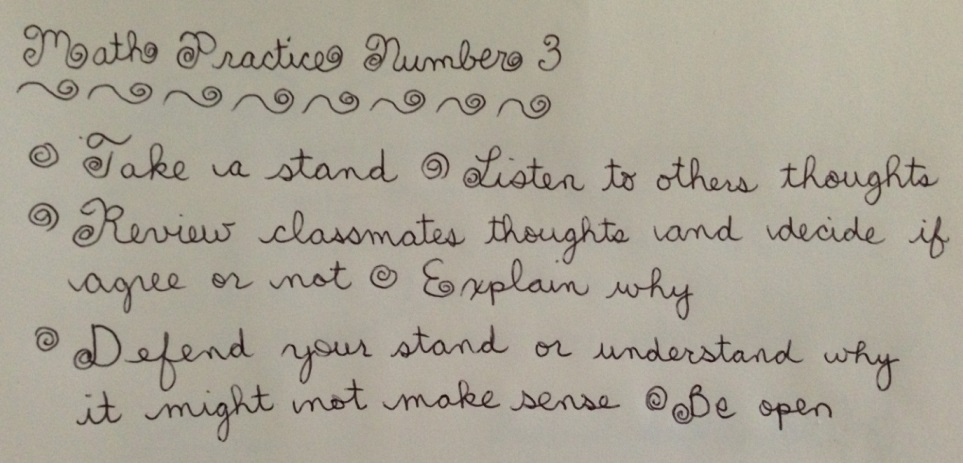 Math Practice Number 3
Take a stand Listen to others thoughts
Review classmates thoughts and decide if
agree or not Explain why
Defend your stand or understand why
it might not make sense Be open